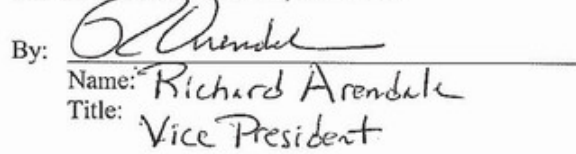 By: R Arendale
Name: Richard Arendale
Title:
Vice President